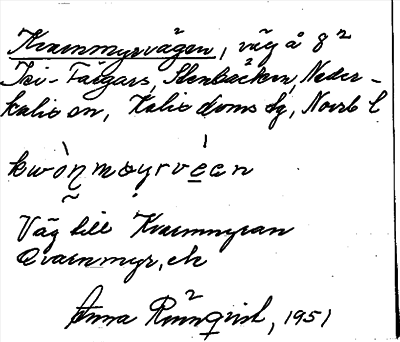 Kvarnmyrvägen, väg å 8²
Tri-Färgars, Stenbäcken, Neder-
kalix sn, Kalix doms sg, Norrb l
Väg till Kvarnmyran
Qvarnmyr, ek
Anna Rönnqvist, 1951